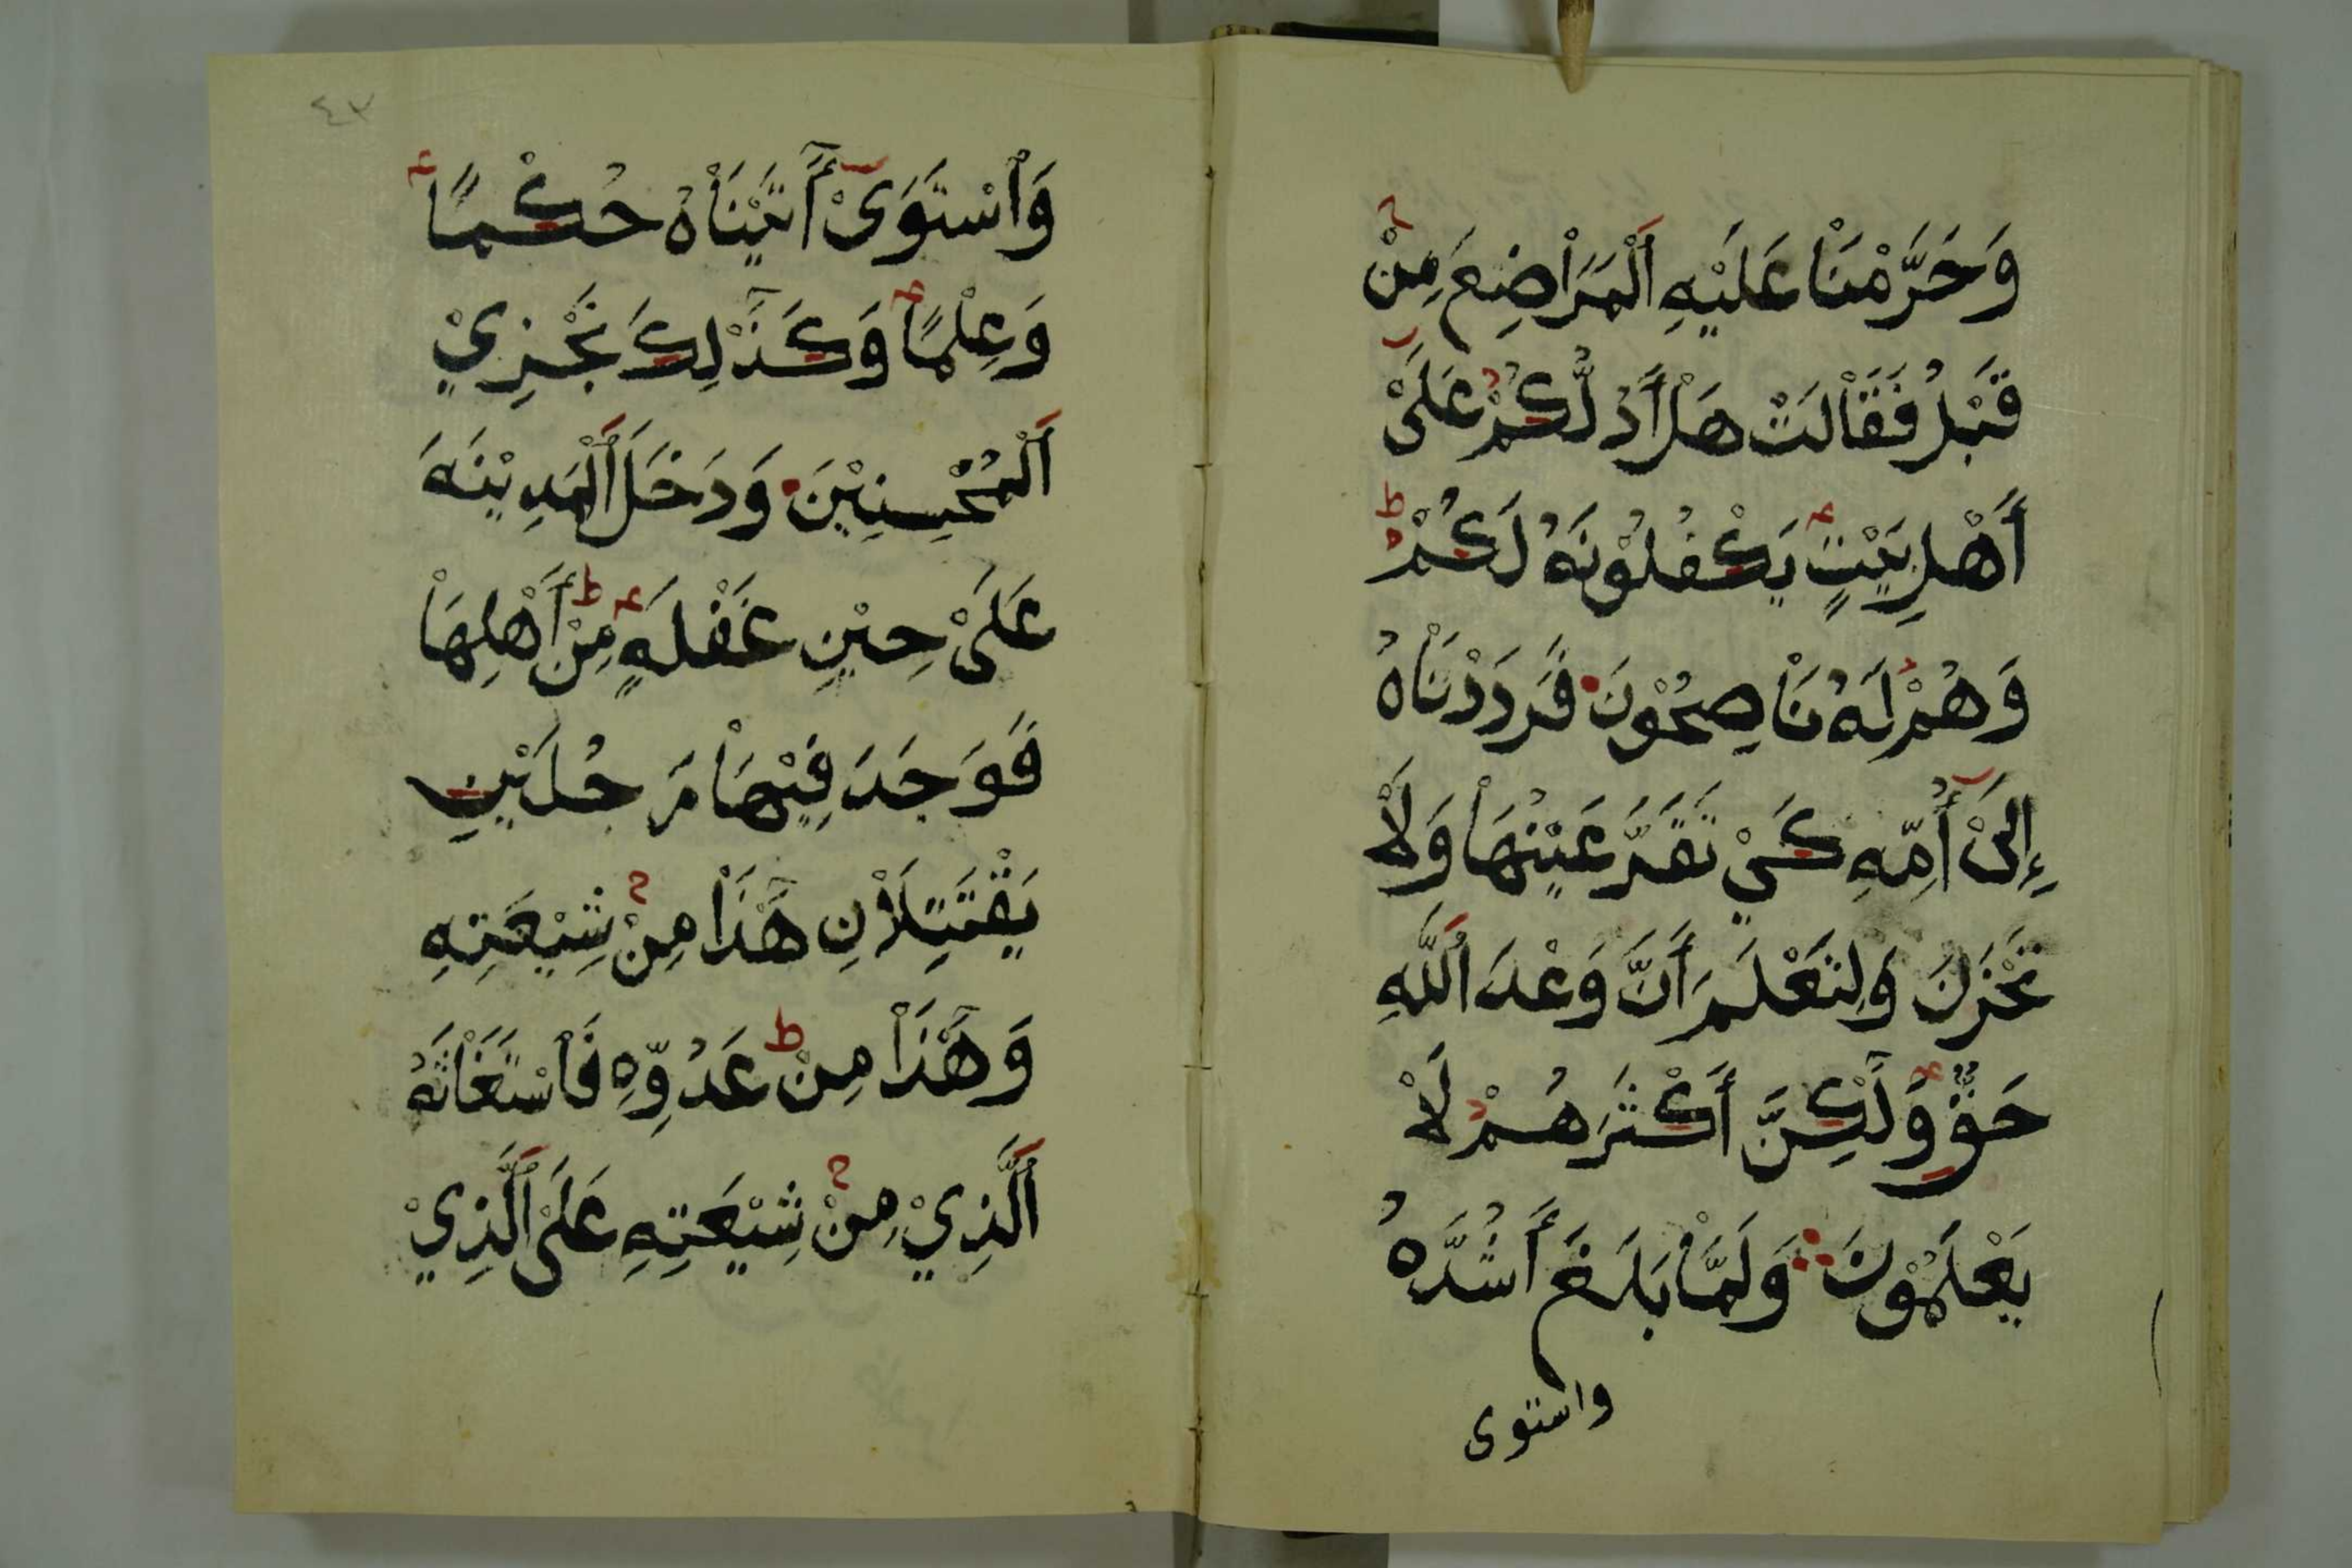 وَحَرَّمْنَاْ عَلَيْهِ اَلْمَرَاْضِعَ مِنْ
قَبْلُ فَقَاْلَتْ هَلْ أَدُلُّكُمْ عَلَىْ
أَهْلِ بَيْتٍ يَكْفُلُوْنَهُ لَكُمْ
وَهُمْ لَهُ نَاْصِحُوْنَ فَرَدَدْنَاْهُ
إِلَىْ أُمِّهِ كَيْ تَقَرَّ عَيْنُهَاْ وَلَاْ
تَحْزَنَ وَلِتَعْلَمَ أَنَّ وَعْدَ اَللَّهِ
حَقٌّ وَلَٰكِنَّ أَكْثَرَهُمْ لَاْ
يَعْلَمُوْنَ وَلَمَّاْ بَلَغَ أَشُدَّهُ
واستوى
٤٣
وَاْسْتَوَىْ أَٰتَيْنَاْهُ حُكْمًا
وَعِلْمًا وَكَذَٰلِكَ نَجْزِيْ
اَلْمُحْسِنِيْنَ وَدَخَلَ اَلْمَدِيْنَةَ
عَلَىْ حِيْنِ غَفْلَةٍ مِنْ أَهْلِهَاْ
فَوَجَدَ فِيْهَاْ رَجُلَيْنِ
يَقْتَتِلَاْنِ هَٰذَاْ مِنْ شِيْعَتِهِ
وَهَٰذَاْ مِنْ عَدُوِّهِ فَاْسْتَغَاْثَهُ
اَلَّذِيْ مِنْ شِيْعَتِهِ عَلَىْ اَلَّذِيْ